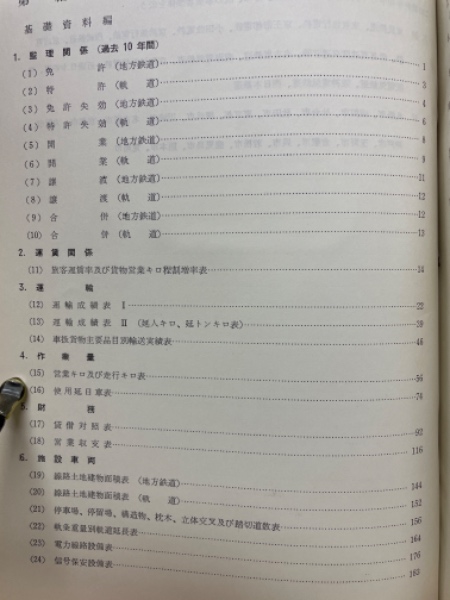 基礎資料編
1. 整理関係 (過去10年間)
(1) 免許 (地方鉄道) 1
(2) 特許 (軌道) 3
(3) 免許失効 (地方鉄道) 4
(4) 特許失効 (軌道) 6
(5) 開業 (地方鉄道) 8
(6) 開業 (軌道) 9
(7) 譲渡 (地方鉄道) 11
(8) 譲渡 (軌道) 12
(9) 合併 (地方鉄道) 12
(10) 合併 (軌道) 13
2. 運賃関係
(11) 旅客運賃率及び貨物営業キロ程割増率表 14
3. 運輸
(12) 運輸成績表 Ⅰ 22
(13) 運輸成績表 Ⅱ (延人キロ、延トンキロ表) 39
(14) 車扱貨物主要品目別輸送実績表 46
4. 作業量
(15) 営業キロ及び走行キロ表 56
(16) 使用延日車表 74
5. 財務
(17) 貸借対照表 92
(18) 営業収支表 116
6. 施設車両
(19) 線路土地建物面積表 (地方鉄道) 144
(20) 線路土地建物面積表 (軌道) 152
(21) 停車場、停留場、構造物、枕木、立体交叉及び踏切道数表 156
(22) 軌条重量別軌道延長表 164
(23) 電力線路設備表 176
(24) 信号保安設備表 183